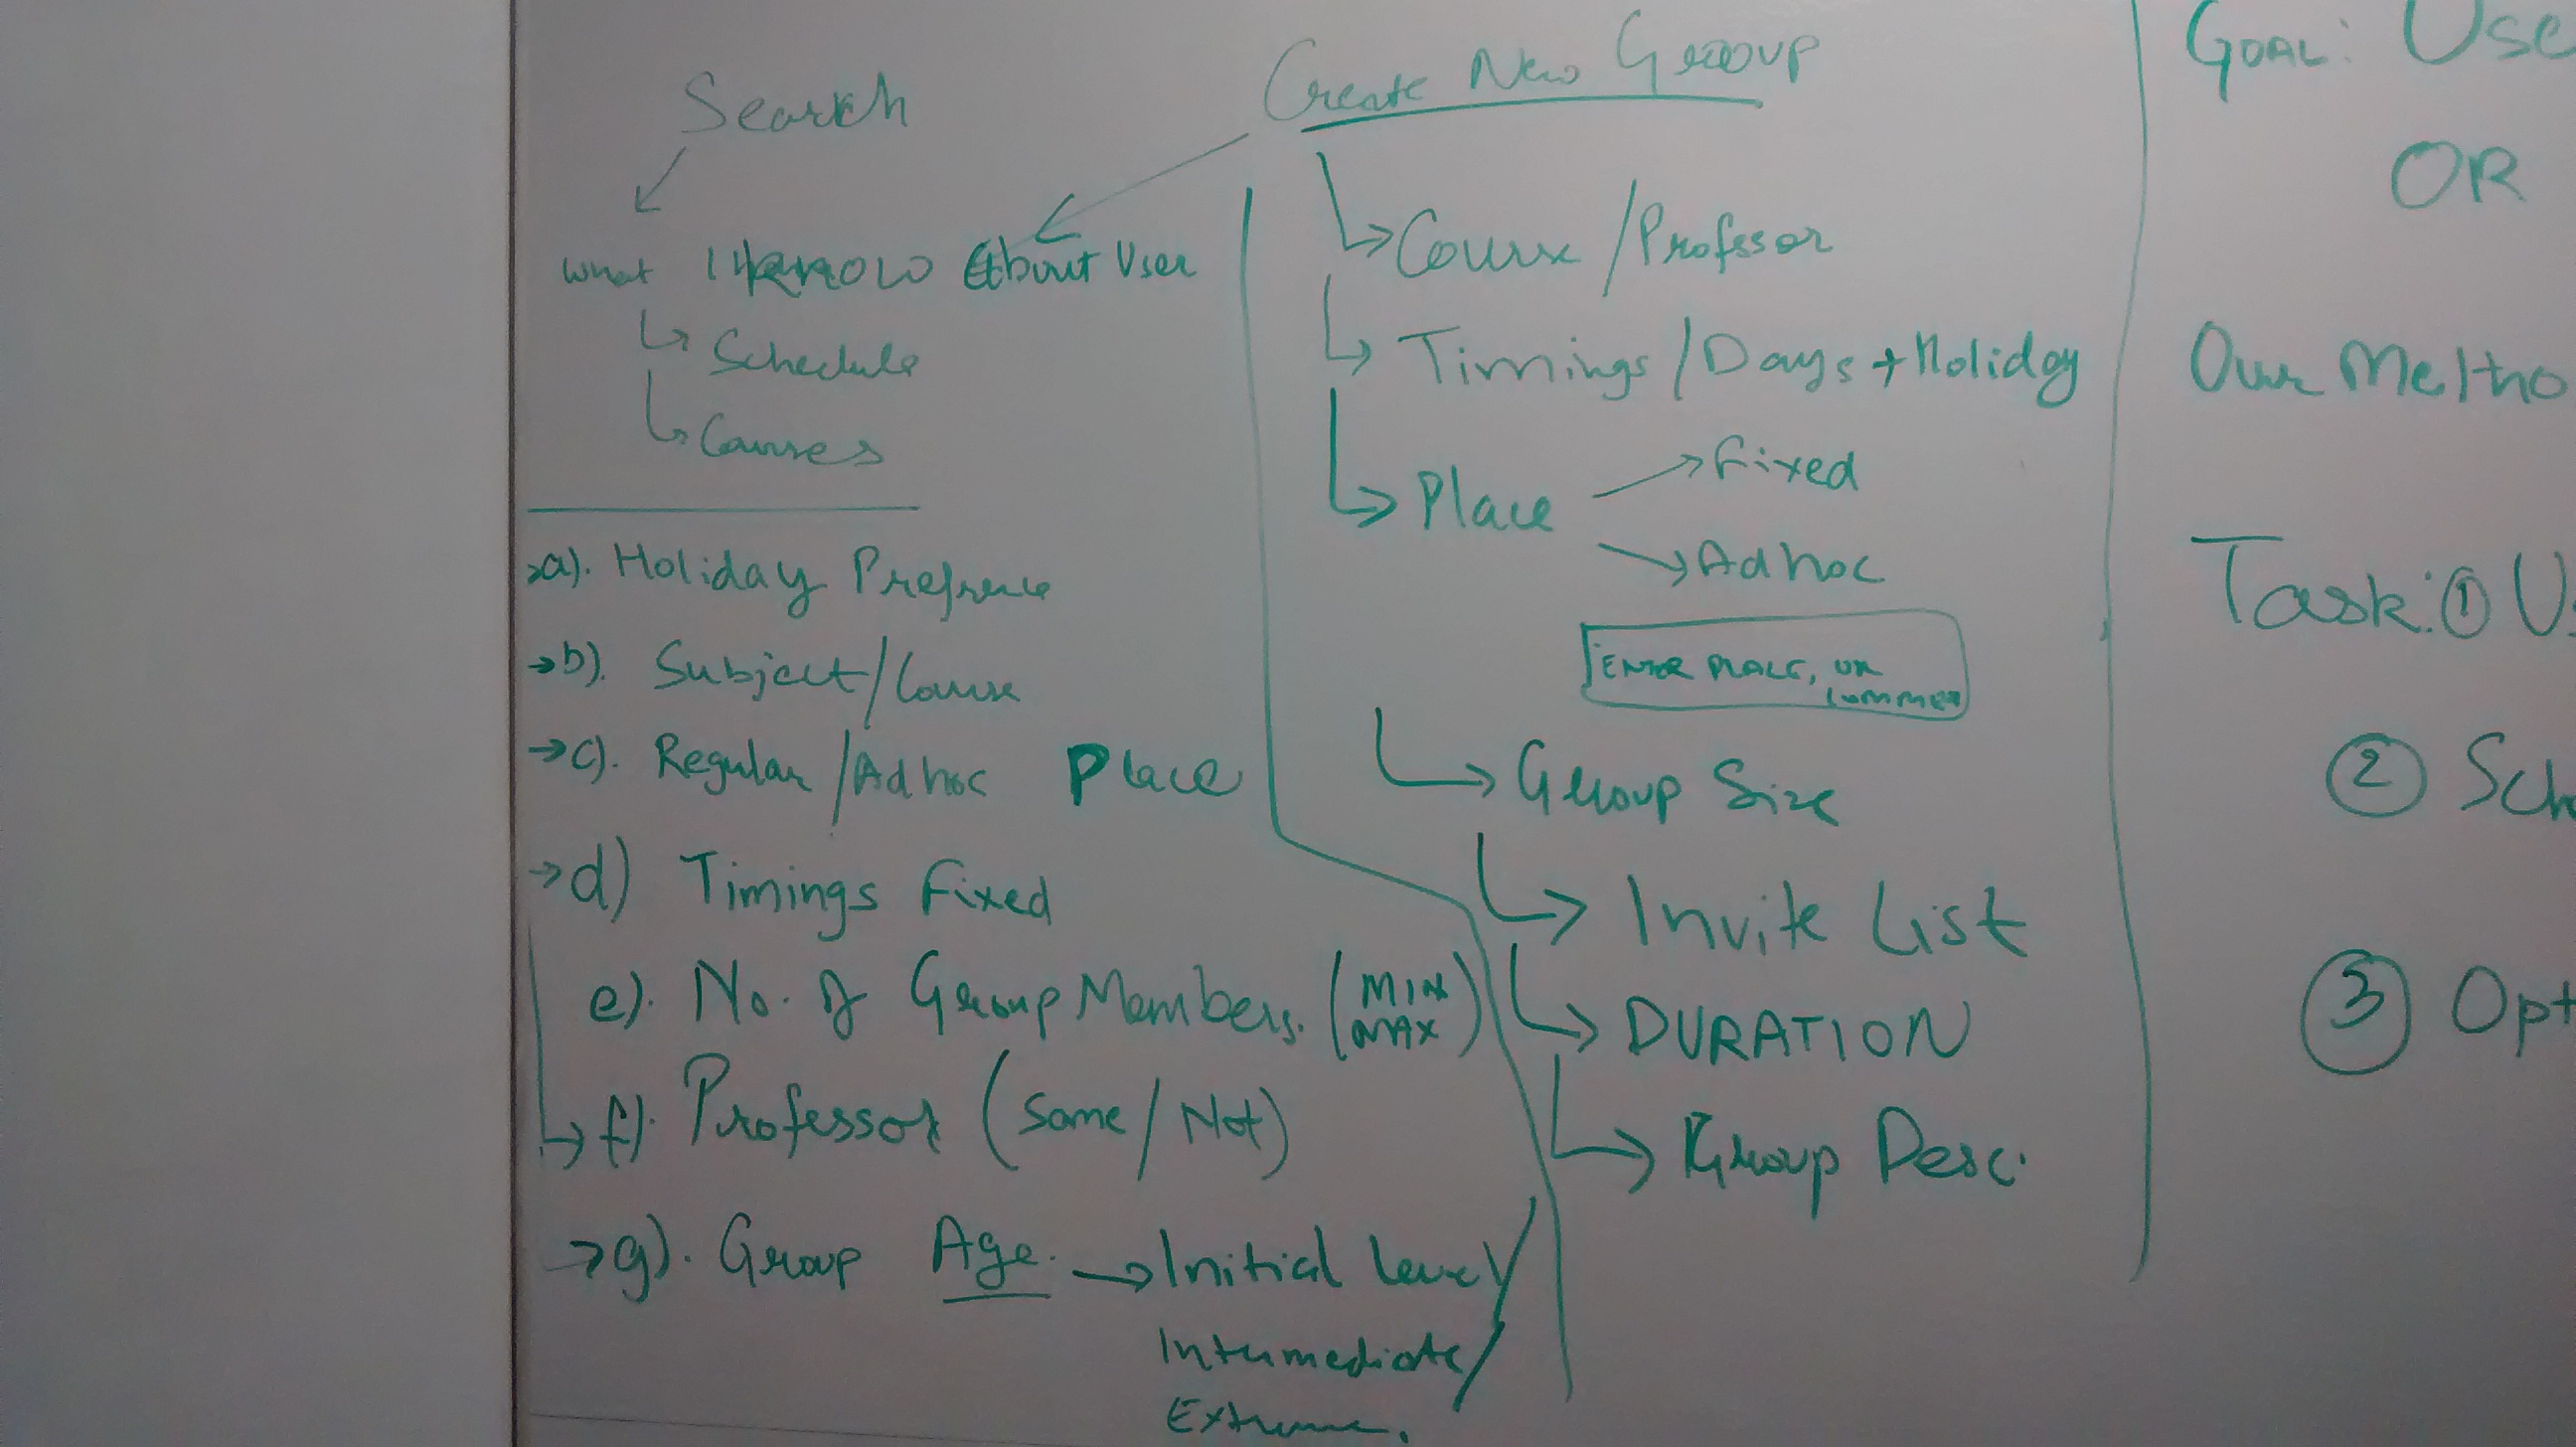 Search
What I know About User
Schedule
Courses
a). Holiday Prefrence
b). Subject/Course
c). Regular/Adhoc Place
d) Timings Fixed
e). No. of Group Members. (MIN MAX)
f). Professor (Same/Not)
g). Group Age. → Initial Level/
Intermediate/
Extreme.
Create New Group
Course/Professor
Timings/Days + Holiday
Place
Fixed
Adhoc
ENTER PLACE, OR
COMMENT
Group Size
Invite List
DURATION
Group Desc.
GOAL: Use
OR
Our Metho
Task: ① Us
② Sch
③ Opt